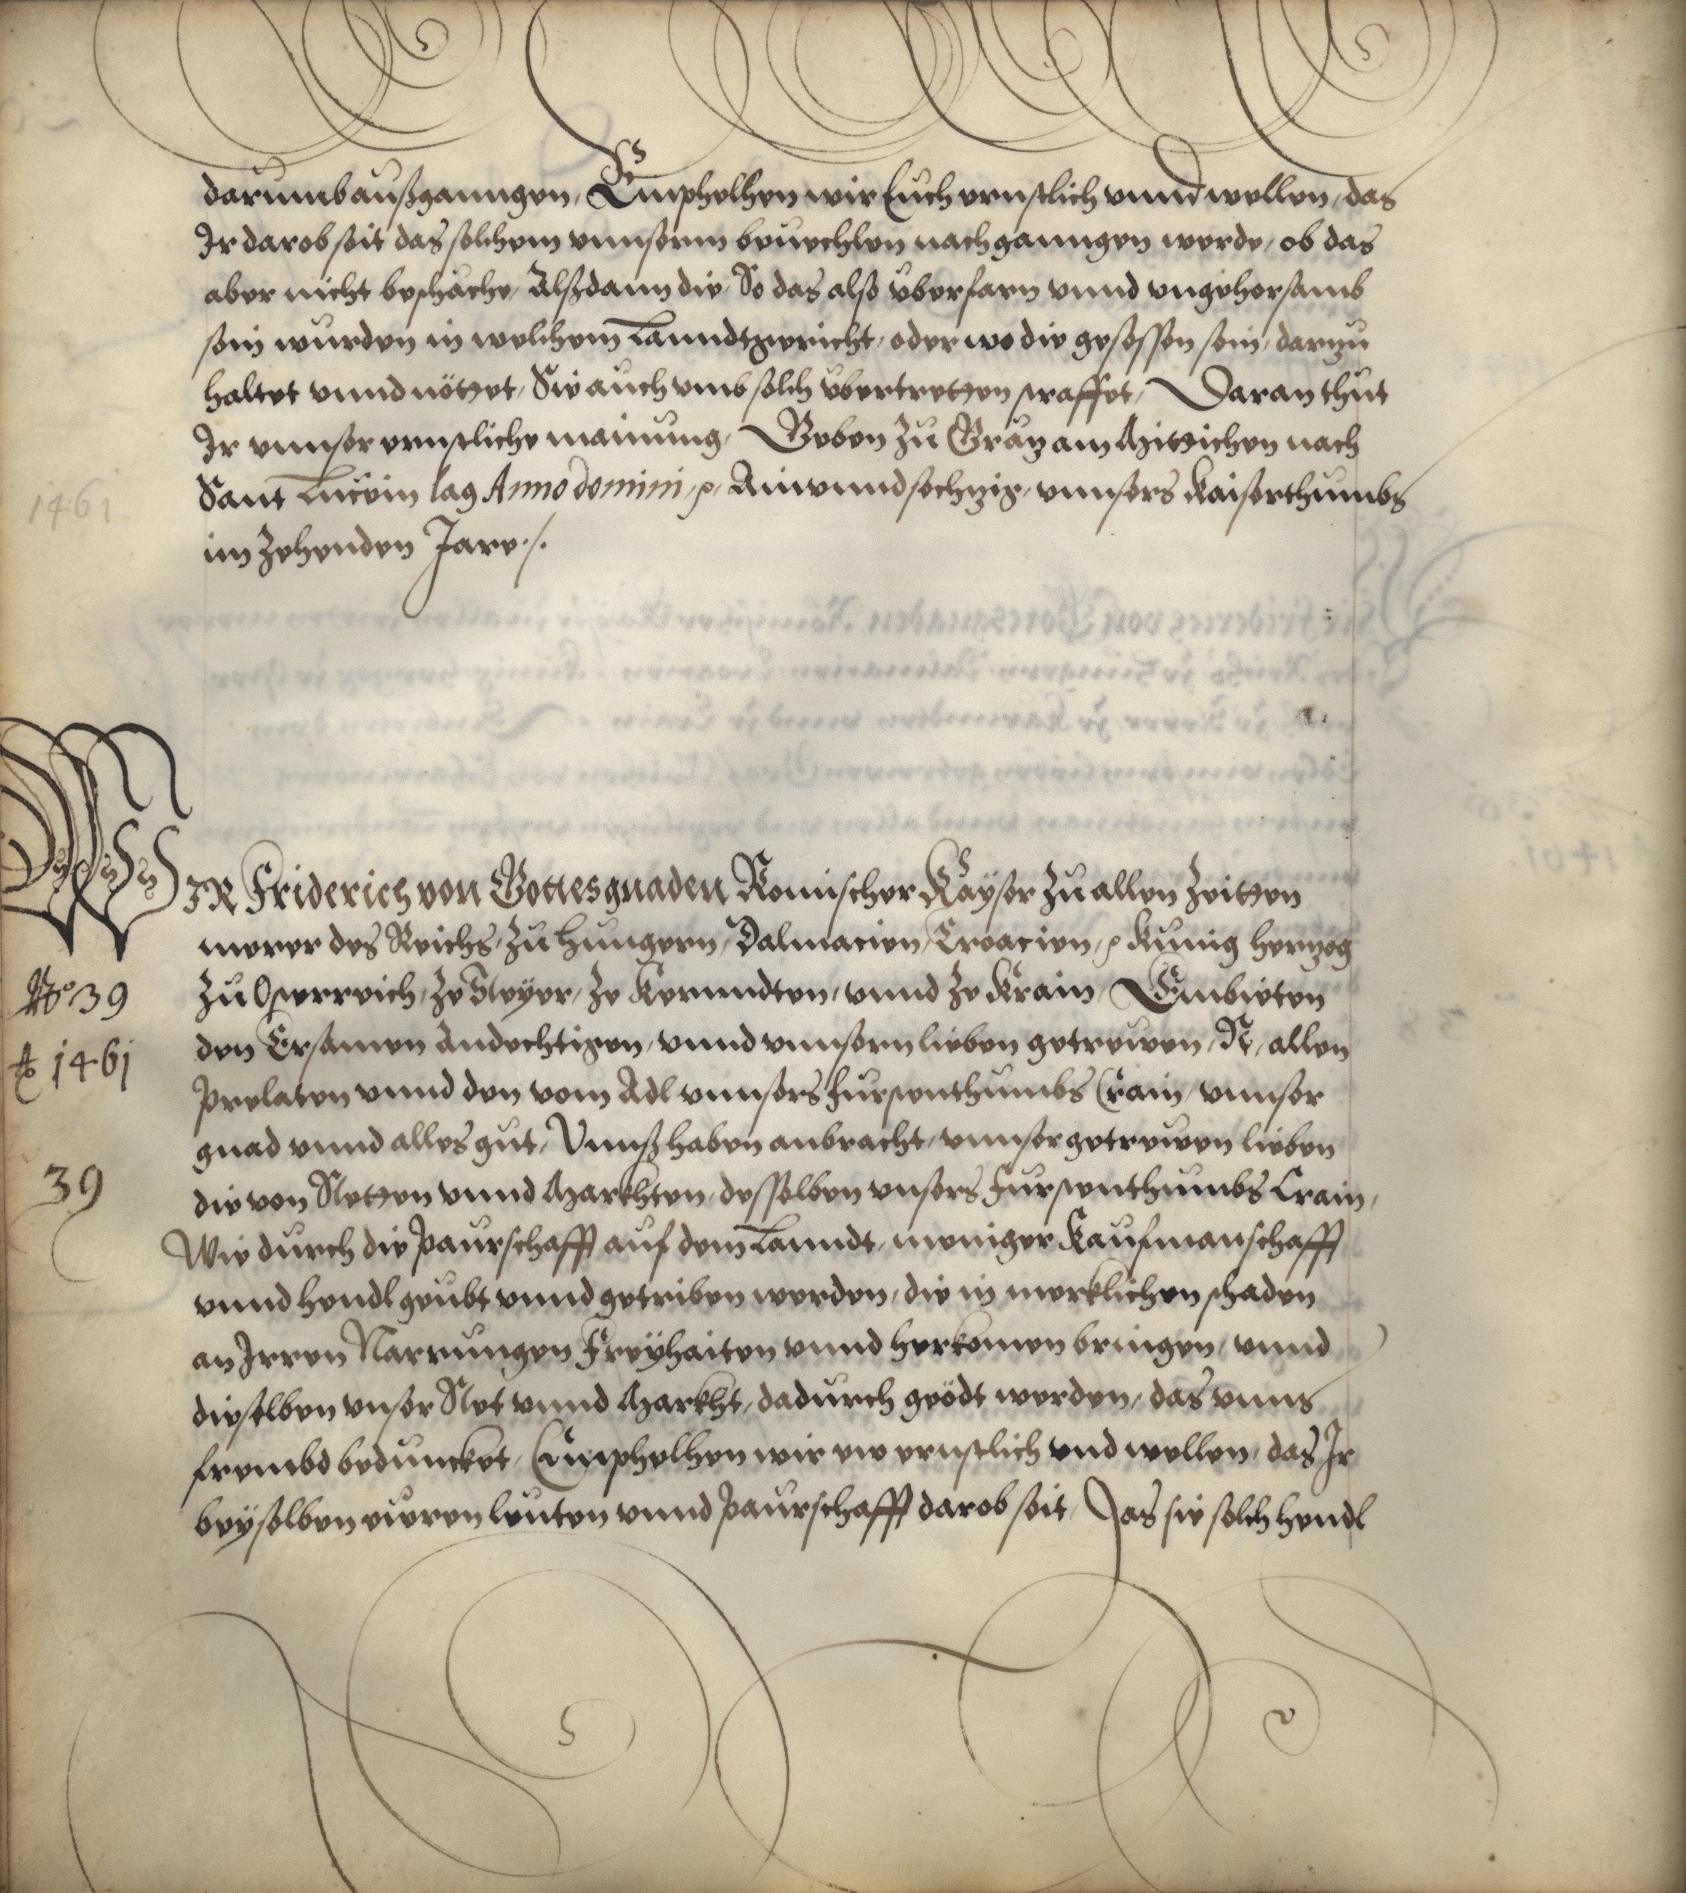 darumb außganngen, Emphelhen wir Euch ernstlich vnnd wellen, das
Ir darob seit das solchem vnnserm beuechlen nachganngen werde, ob das
aber nicht beschäche, Alßdann die, So das also vberfarn vnnd vngehorsamb
sein wurden in welchem Lanndtgericht, oder wo die gesessen sein, darzu
haltet vnnd nöttet, Sie auch vmb solch vbertretten straffet, Daran thut
Ir vnnser ernstliche mainung, Geben zu Gräz am Mittichen nach
Sant Lucein tag Anno domini, ꝛc. Ainvnndsechzig, vnnsers Kaiserthumbs
im zehenden Jare ./.
1461
WIR Friderich von Gottes gnaden Romischer Kayser zu allen zeitten
merer des Reichs, zu Hungern, Dalmacien, Croacien, ꝛc Kunig Herzog
zu Osterreich, ze Steyer, ze Kernndten, vnnd ze Krain, Embieten
den Ersamen Andechtigen, vnnd vnnsern lieben getrewen, N, allen
Prelaten vnnd den vom Adl vnnsers Furstenthumbs Crain, vnnser
gnad vnnd alles gut, Vnnß haben anbracht, vnnser getrewen lieben
die von Stetten vnnd Märkhten, desselben vnsers Furstenthumbs Crain,
Wie durch die Paurschafft auf dem Lanndt, meniger Kaufmanschafft
vnnd hendl geubt vnnd getriben werden, die in merklichen schaden
an Irren Narrungen Freyhaiten vnnd herkomen bringen, vnnd
dieselben vnser Stet vnnd Märkht, dadurch geödt werden, das vnns
frembd beduncket, Emphelhen wir ew ernstlich vnd wellen, das Ir
bey selben ewren leuten vnnd Paurschafft darob seit, Das sie solch hendl
No 39
Ao 1461
39